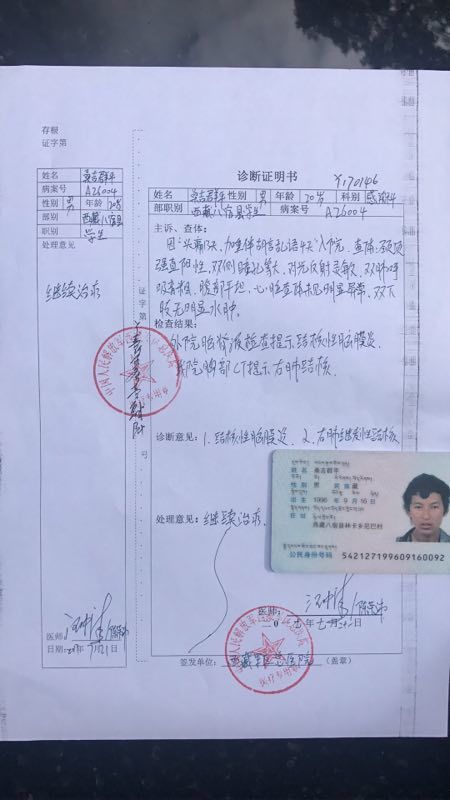 存根
证字第
姓名 桑吉群平
病案号 A26004
性别 男 年龄 20岁
部别 西藏八宿县
职别 学生
处理意见
继续治疗
医师:
日期:
证字第
号
诊断证明书
Y1701406
姓名 桑吉群平 性别 男 年龄 20岁 科别 感染科
部职别 西藏八宿县学生 病案号 A26004
主诉、查体:
因“头痛 天,加重伴胡言乱语4天”入院。查体:颈项
强直阳性,双侧瞳孔等大,对光反射灵敏,双肺呼
吸音粗,腹部平坦,心脏查体未见明显异常,双下
肢无明显水肿。
检查结果:
外院脑脊液检查提示结核性脑膜炎
我院胸部CT提示右肺结核
诊断意见: 1. 结核性脑膜炎 2. 右肺继发性结核
处理意见: 继续治疗.
医师:
年七月二十一日
签发单位: 西藏军区总医院 (盖章)
中国人民解放军
医疗专用章
姓名 桑吉群平
性别 男 民族 藏
出生 1996 年 9 月 16 日
住址
西藏八宿县林卡乡尼巴村
公民身份号码 542127199609160092